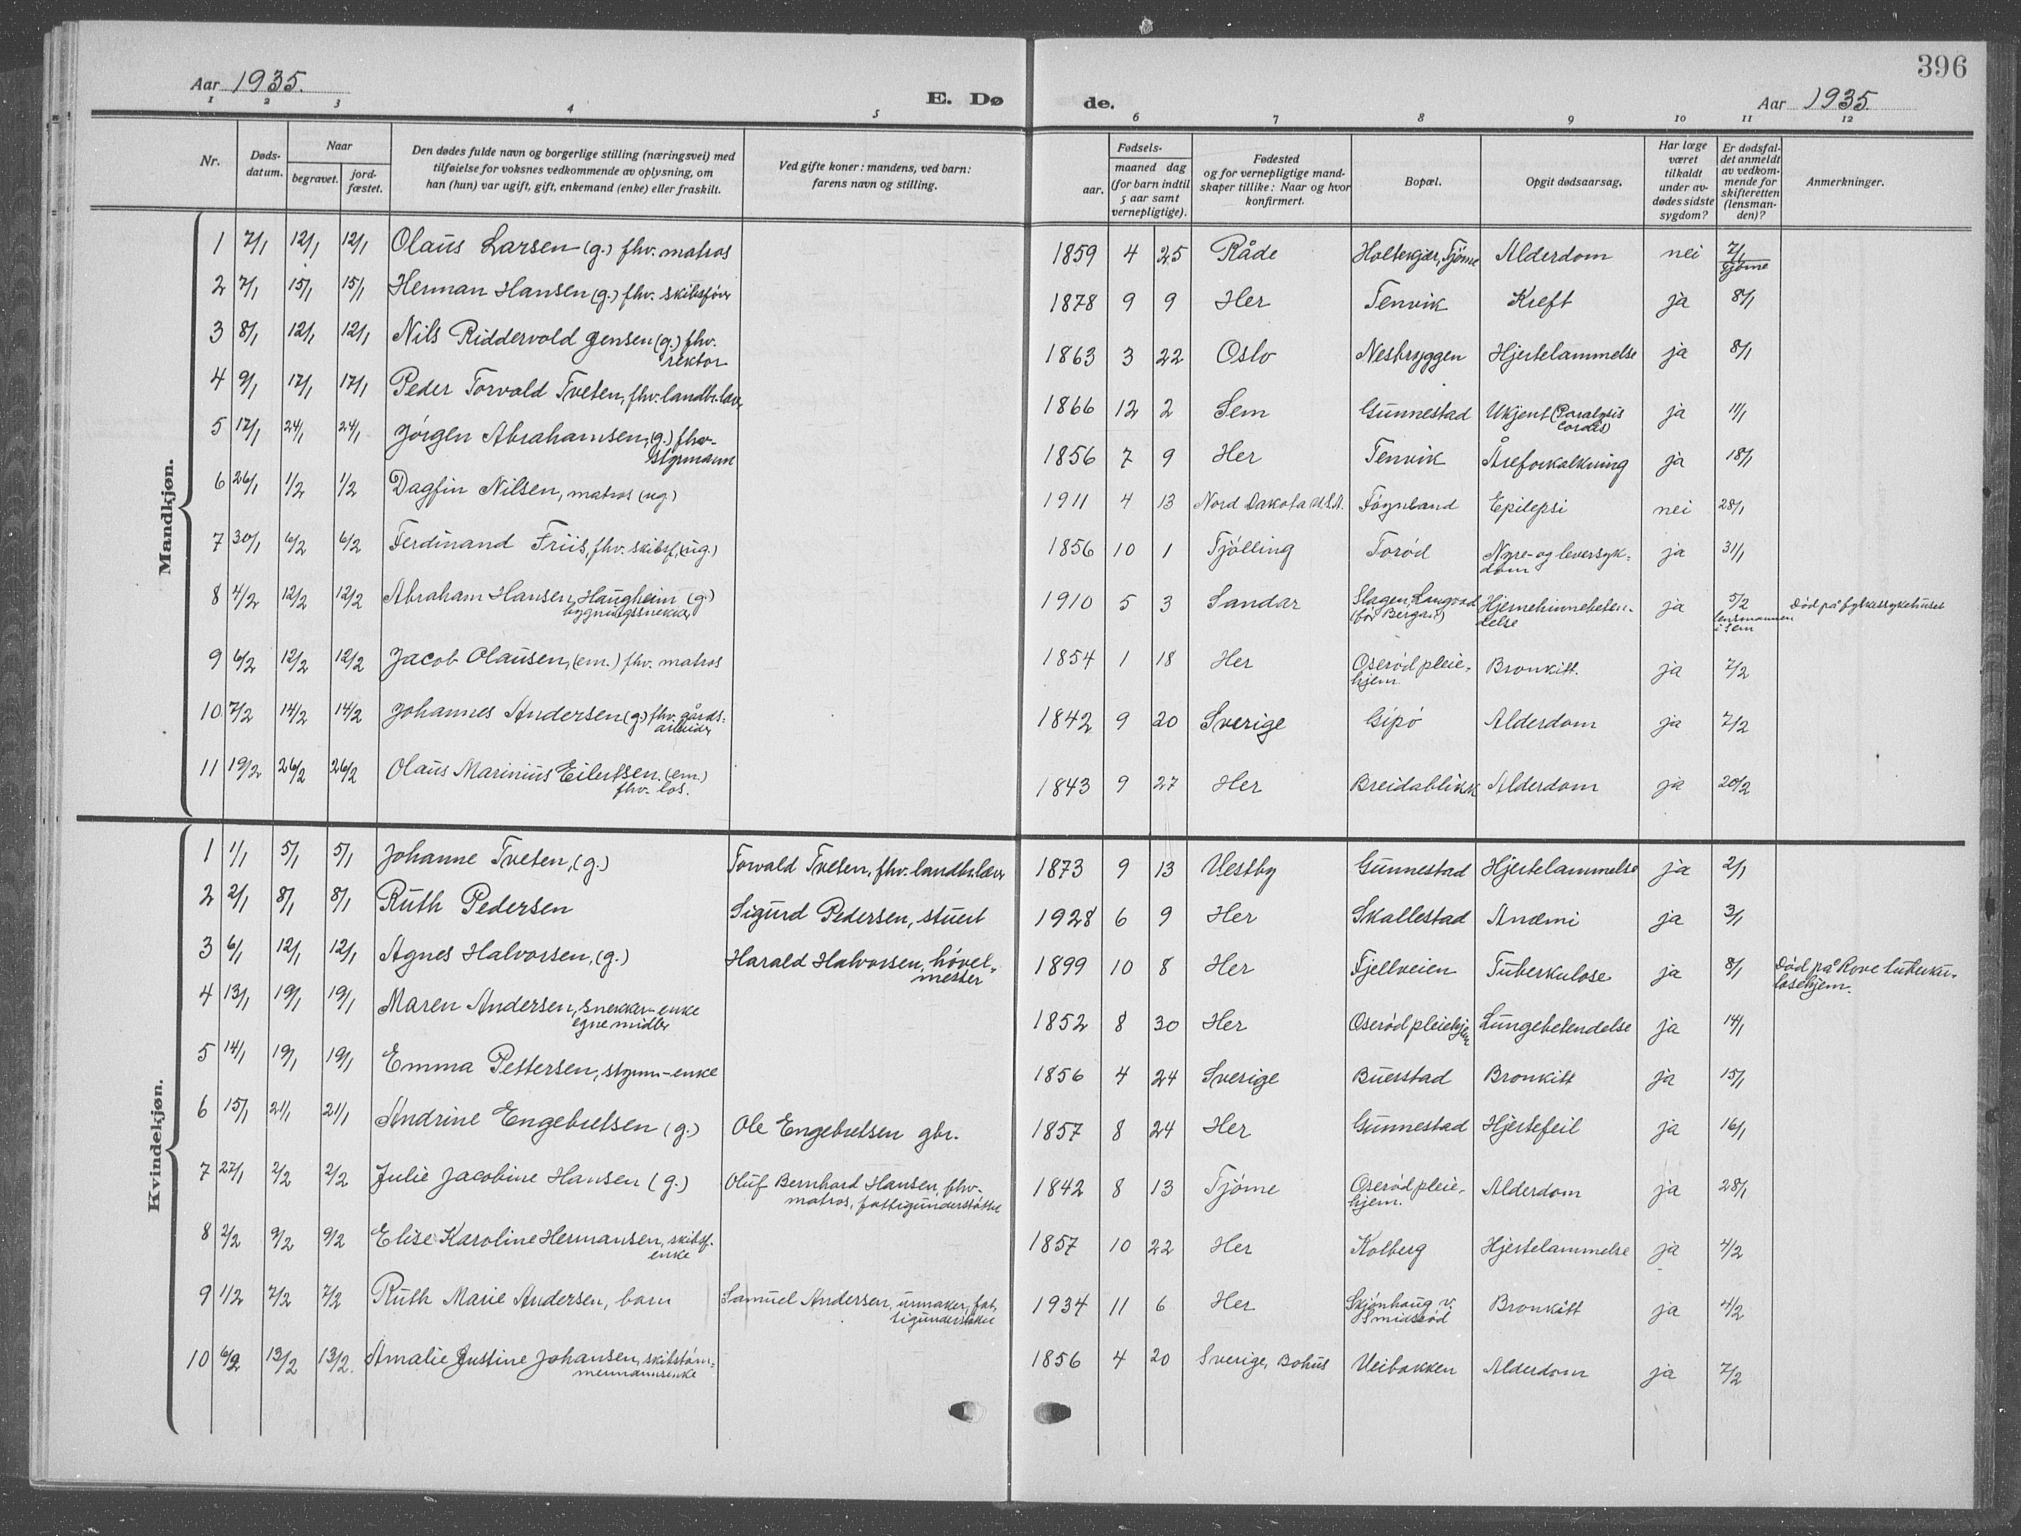 396
Aar 1935. E. Dø de. Aar 1935.
1 2 3 4 5 6 7 8 9 10 11 12
Nr. Døds-datum. Naar begravet. jord-fæstet. Den dødes fulde navn og borgerlige stilling (næringsvei) med tilføielse for voksnes vedkommende av oplysning, om han (hun) var ugift, gift, enkemand (enke) eller fraskilt. Ved gifte koner: mandens, ved barn: farens navn og stilling. Fødsels- aar. maaned dag (for barn indtil 5 aar samt vernepligtige). Fødested og for vernepligtige mandskaper tillike: Naar og hvor konfirmert. Bopæl. Opgit dødsaarsag. Har læge været tilkaldt under avdødes sidste sygdom? Er dødsfaldet anmeldt av vedkommende for skifteretten (lensmanden)? Anmerkninger.
Mandkjøn.
1 7/1 12/1 12/1 Olaus Larsen (g.) fhv. matros 1859 4 25 Råde Holtekjær, Tjøme Alderdom nei 7/1 Tjøme
2 7/1 15/1 15/1 Herman Hansen (g.) fhv. skibsfører 1878 9 9 Her Tenvik Kreft ja 8/1
3 8/1 12/1 12/1 Nils Riddervold Jensen (g.) fhv. rektor 1863 3 22 Oslo Nesbryggen Hjertelammelse ja 8/1
4 9/1 17/1 17/1 Peder Torvald Tveten, fhv. landbr.lærer 1866 12 2 Sem Gunnestad Ukjent (Paralysis cordis) ja 11/1
5 17/1 24/1 24/1 Jørgen Abrahamsen, (g.) fhv. styrmann 1856 7 9 Her Tenvik Åreforkalkning ja 18/1
6 26/1 1/2 1/2 Dagfin Nilsen, matros (ug.) 1911 4 13 Nord Dakota U.S.A. Føynland Epilepsi nei 28/1
7 30/1 6/2 6/2 Ferdinand Friis, fhv. skibsf. (ug.) 1856 10 1 Tjølling Torød Nyre- og leversyk-dom ja 31/1
8 4/2 12/2 12/2 Abraham Hansen Haugheim (g.) bygningssnekker 1910 5 3 Sandar Slagen, Hjernehinnebeten-delse ja 5/2 lensmannen i Sem Død på fylkessykehuset
9 6/2 12/2 12/2 Jacob Olausen, (em.) fhv. matros 1854 1 18 Her Oserød pleie-hjem. Bronkitt. ja 7/2
10 7/2 14/2 14/2 Johannes Andersen (g.) fhv. gårds-arbeider 1842 9 20 Sverige Gipø Alderdom ja 7/2
11 19/2 26/2 26/2 Olaus Marinius Eilertsen. (em.) fhv. los. 1843 9 27 Her Breidablikk Alderdom ja 20/2
Kvindekjøn.
1 1/1 5/1 5/1 Johanne Tveten, (g.) Torvald Tveten, fhv. landbr.lærer 1873 9 13 Vestby Gunnestad Hjertelammelse ja 2/1
2 2/1 8/1 8/1 Ruth Pedersen Sigurd Pedersen, stuert 1928 6 9 Her Skallestad Anæmi ja 3/1
3 6/1 12/1 12/1 Agnes Halvorsen, (g.) Harald Halvorsen, høvel-mester 1899 10 8 Her Fjellveien Tuberkulose ja 8/1 Død på Rove tuberku-losehjem.
4 13/1 19/1 19/1 Maren Andersen, snekker-enke egne midler 1852 8 30 Her Oserød pleiehjem Lungebetendelse ja 14/1
5 14/1 19/1 19/1 Emma Pettersen, styrm-enke 1856 4 24 Sverige Buerstad Bronkitt ja 15/1
6 15/1 21/1 21/1 Andrine Engebretsen (g.) Ole Engebretsen gbr. 1857 8 24 Her Gunnestad Hjertefeil ja 16/1
7 27/1 2/2 2/2 Julie Jacobine Hansen (g.) Oluf Bernhard Hansen, fhv. matros, fattigunderstøttet 1842 8 13 Tjøme Oserød pleie-hjem. Alderdom ja 28/1
8 2/2 9/2 9/2 Elise Karoline Hermansen, skibsf. enke 1857 10 22 Her Kolberg Hjertelammelse ja 4/2
9 1/2 7/2 7/2 Ruth Marie Andersen, barn Samuel Andersen, urmaker, fat-tigunderstøttet 1934 11 6 Her Skjønhaug v. Smidsrød Bronkitt ja 4/2
10 6/2 13/2 13/2. Amalie Justine Johansen, skibstøm-mermannsenke 1856 4 20 Sverige, Bohus Veibakken Alderdom ja 7/2